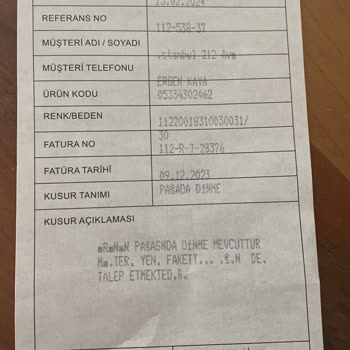 13.02.2024
REFERANS NO
112-538-37
MÜŞTERİ ADI / SOYADI
.stanbul 212 Avm
MÜŞTERİ TELEFONU
ERGEN KAYA
ÜRÜN KODU
05334302462
RENK/BEDEN
11220018310030031/
30
FATURA NO
112-R-7-28376
FATÜRA TARİHİ
09.12.2023
KUSUR TANIMI
PAŞADA DİNME
KUSUR AÇIKLAMASI
PAŞASNDA DİNME MEVCUTTUR
YEN. DE.
TALEP ETMEKTED.R.